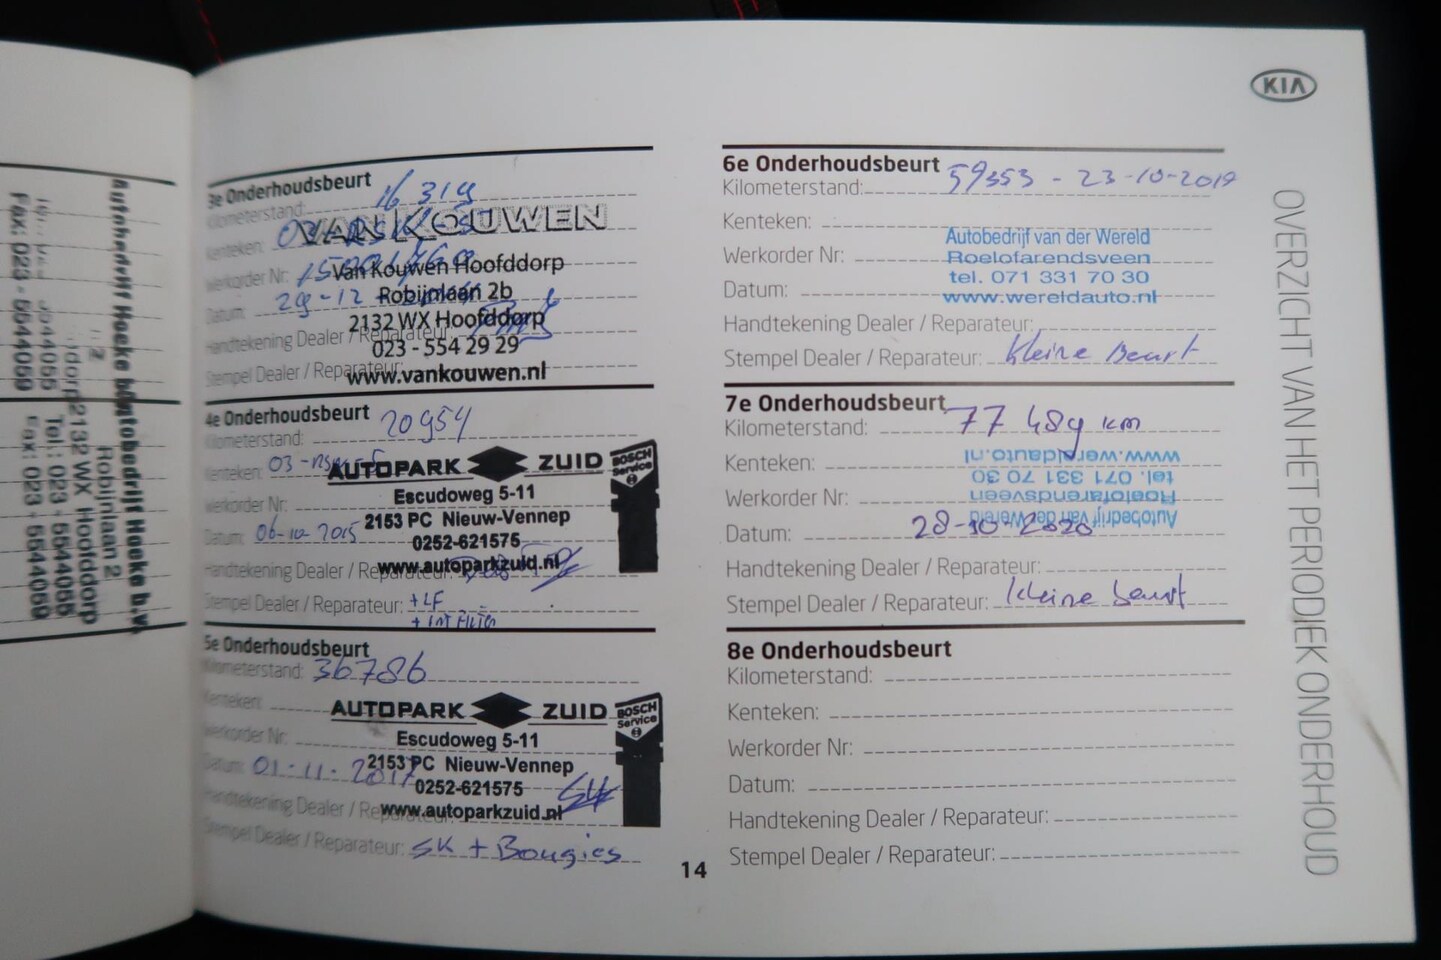 KIA
OVERZICHT VAN HET PERIODIEK ONDERHOUD
Autobedrijf Hoeke b.v.
Robijnlaan 2
2132 WX Hoofddorp
Tel.: 023 - 5544055
Fax: 023 - 5544059
3e Onderhoudsbeurt
Kilometerstand: 16 319
Kenteken:
Werkorder Nr:
Datum: 29-12
Handtekening Dealer / Reparateur:
Stempel Dealer / Reparateur:
VAN KOUWEN
Van Kouwen Hoofddorp
Robijnlaan 2b
2132 WX Hoofddorp
023 - 554 29 29
www.vankouwen.nl
4e Onderhoudsbeurt
Kilometerstand: 20954
Kenteken: 03-
Werkorder Nr:
Datum: 06-10-2015
Handtekening Dealer / Reparateur:
Stempel Dealer / Reparateur: + LF
+ INT FILTER
AUTOPARK ZUID
BOSCH
Service
Escudoweg 5-11
2153 PC Nieuw-Vennep
0252-621575
www.autoparkzuid.nl
5e Onderhoudsbeurt
Kilometerstand: 36786
Kenteken:
Werkorder Nr:
Datum: 01-11-2017
Handtekening Dealer / Reparateur:
Stempel Dealer / Reparateur: SK + Bougies
AUTOPARK ZUID
BOSCH
Service
Escudoweg 5-11
2153 PC Nieuw-Vennep
0252-621575
www.autoparkzuid.nl
14
6e Onderhoudsbeurt
Kilometerstand: 59353 - 23-10-2019
Kenteken:
Werkorder Nr:
Datum:
Handtekening Dealer / Reparateur:
Stempel Dealer / Reparateur: Kleine Beurt
Autobedrijf van der Wereld
Roelofarendsveen
tel. 071 331 70 30
www.wereldauto.nl
7e Onderhoudsbeurt
Kilometerstand: 77 489 km
Kenteken:
Werkorder Nr:
Datum: 28-10-2020
Handtekening Dealer / Reparateur:
Stempel Dealer / Reparateur: Kleine beurt
Autobedrijf van der Wereld
Roelofarendsveen
tel. 071 331 70 30
www.wereldauto.nl
8e Onderhoudsbeurt
Kilometerstand:
Kenteken:
Werkorder Nr:
Datum:
Handtekening Dealer / Reparateur:
Stempel Dealer / Reparateur: